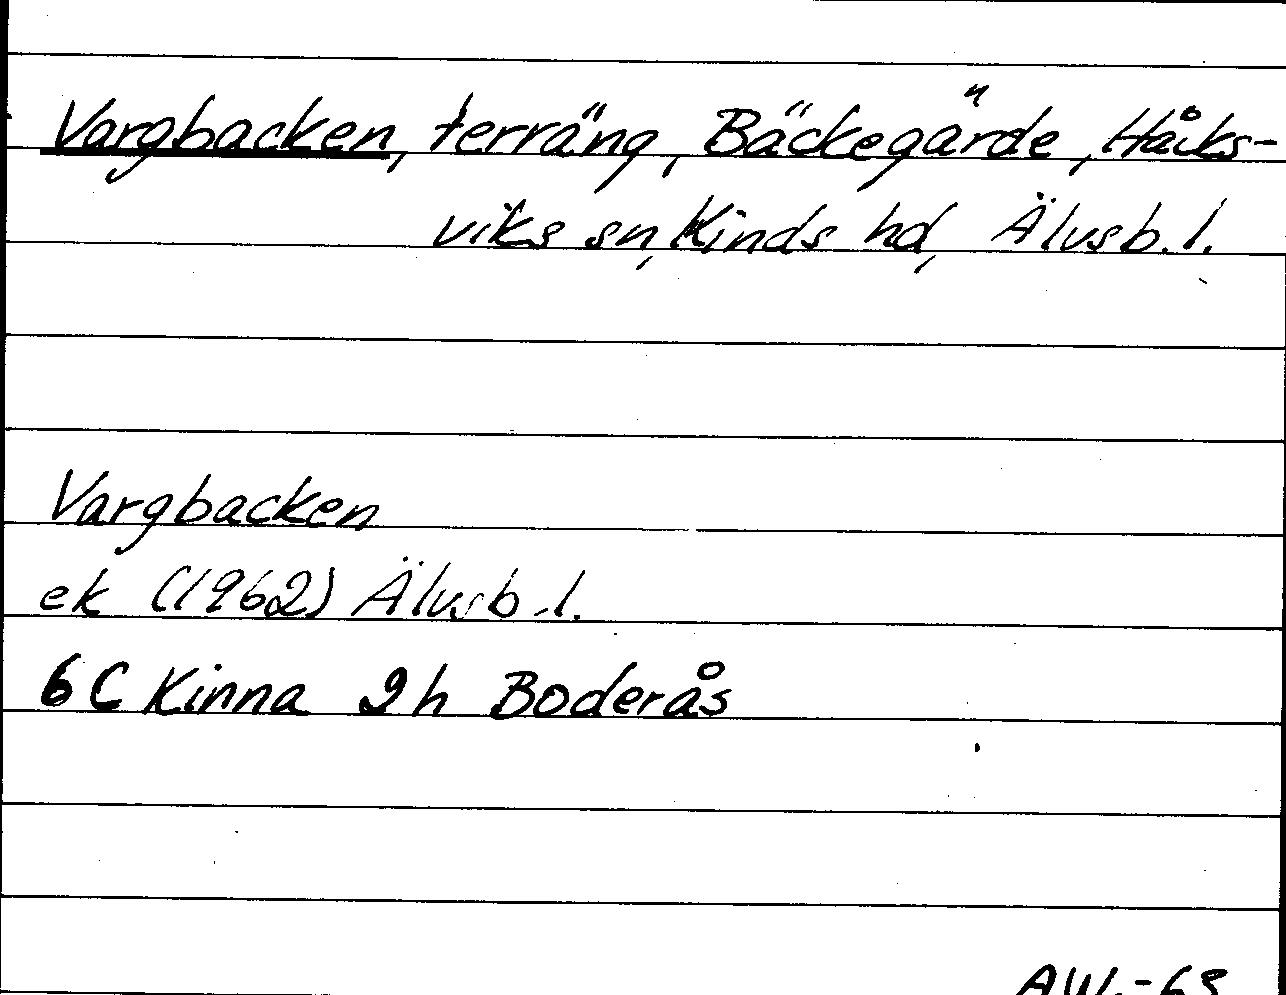 Vargbacken, terräng, Bäckegärde, Håks-
viks sn, Kinds hd, Älvsb. l.
Vargbacken
ek (1962) Älvsb. l.
6C Kinna 2h Boderås
AW.-63